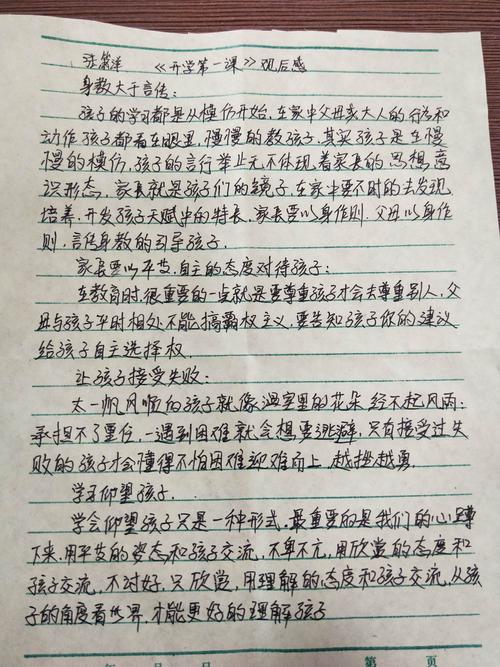 《开学第一课》观后感
身教大于言传：
孩子的学习都是从模仿开始，在家中父母亲大人的行为和
动作孩子都看在眼里，慢慢的教孩子。其实孩子是在慢
慢的模仿，孩子的言行举止无不体现着家长的思想意
识形态，家长就是孩子们的镜子，在家中要不时的去发现
培养，开发孩子天赋中的特长，家长要以身作则。父母以身作
则，言传身教的引导孩子。
家长要以平等，自主的态度对待孩子：
在教育时，很重要的一点就是要尊重孩子才会去尊重别人，父
母与孩子平时相处不能搞霸权主义，要告知孩子你的建议
给孩子自主选择权。
让孩子接受失败：
太一帆风顺的孩子就像温室里的花朵经不起风雨；
承担不了重任，一遇到困难就会想要逃避，只有接受过失
败的孩子才会懂得不怕困难迎难而上，越挫越勇。
学习仰望孩子。
学会仰望孩子只是一种形式，最重要的是我们的心蹲
下来，用平等的姿态和孩子交流，不卑不亢，用欣赏的态度和
孩子交流，不讨好，只欣赏，用理解的态度和孩子交流，从孩
子的角度看世界，才能更好的理解孩子
年 月 日 第 页